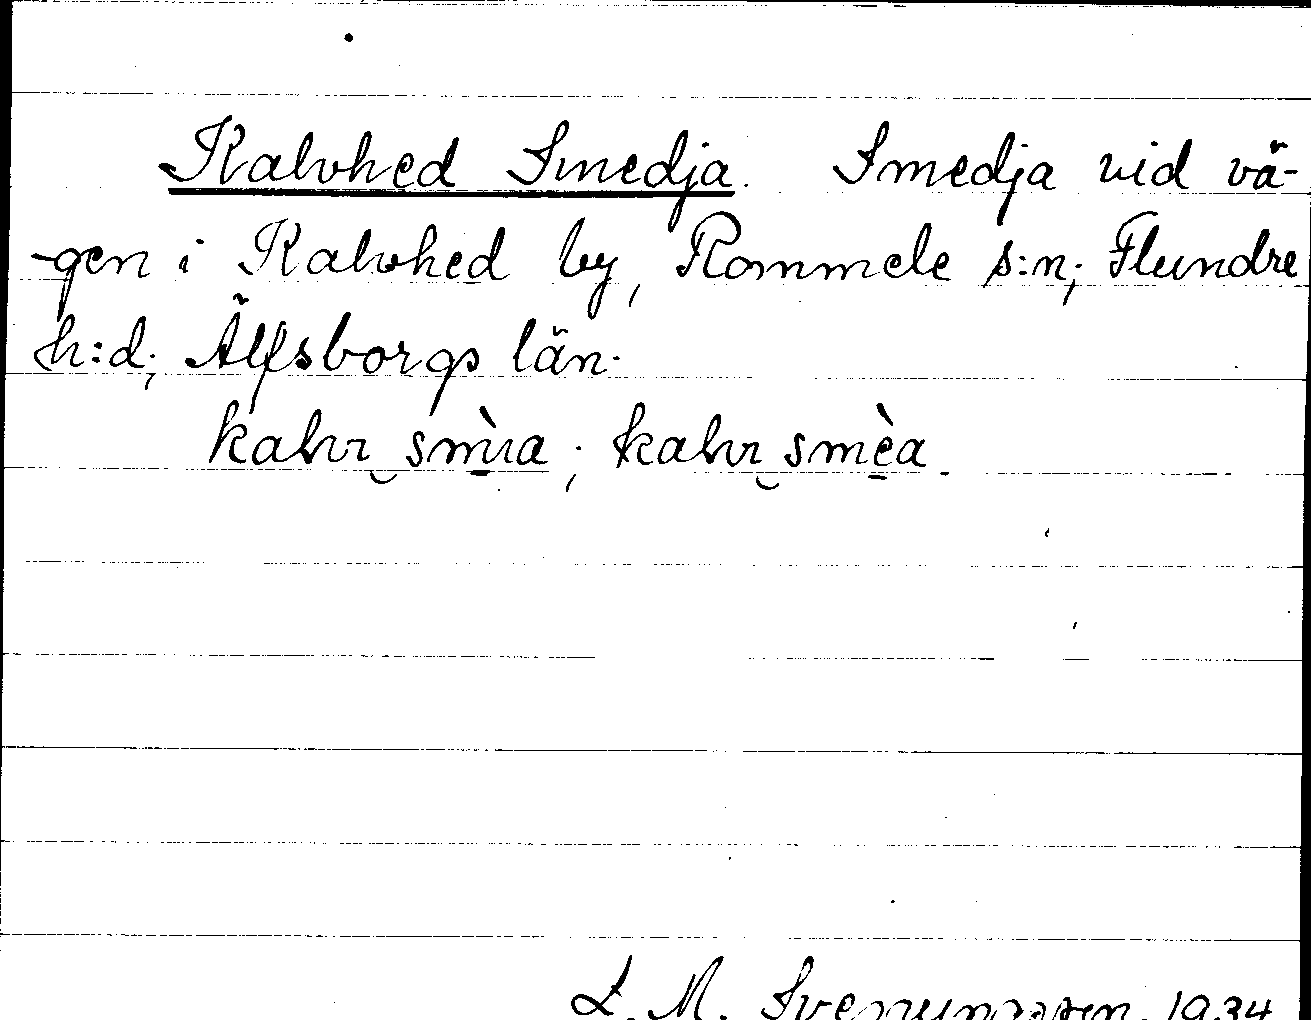 Kalvhed Smedja. Smedja vid vä-
-gen i Kalvhed by, Rommele s:n; Flundre
h:d; Älfsborgs län.
kalvı smìıa; kalvı smèa.
L. M. Svenungsson. 1934